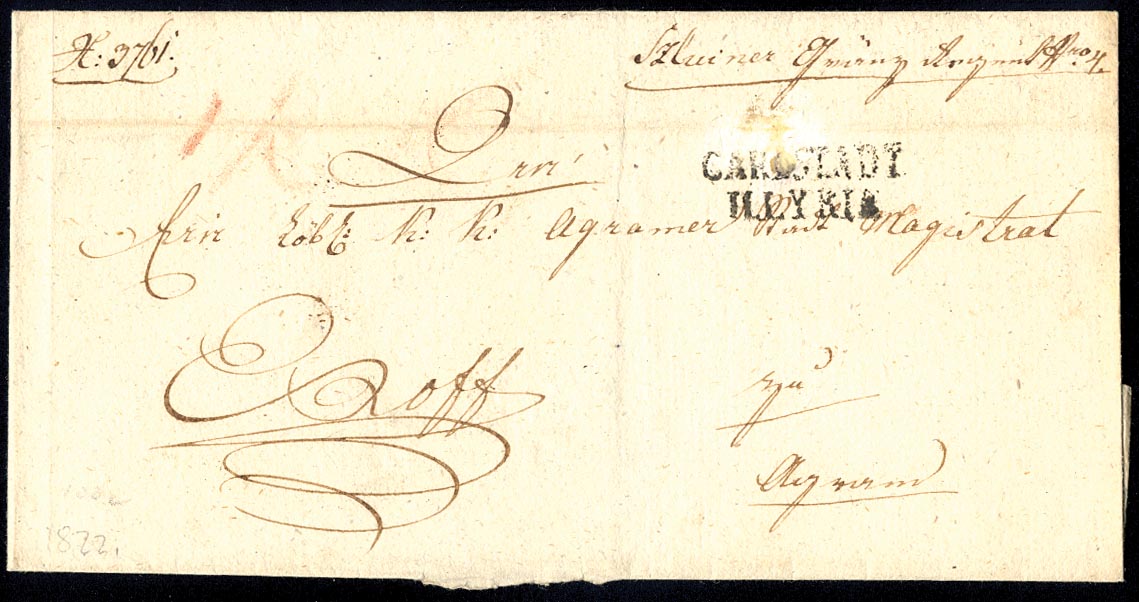 N: 3761.
Szluiner Gränz Regimt Nro 4.
CARLSTADT
ILLYRIE
Löbl: K: K: Agramer Stadt Magistrat
zu
Agram
1822.